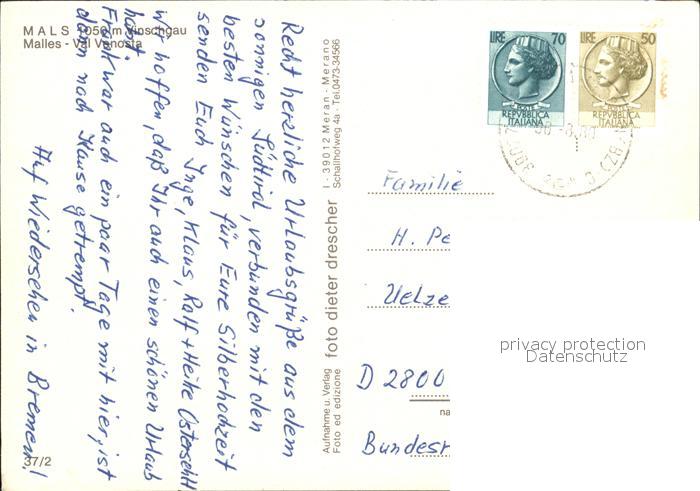 MALS 1050 m Vinschgau
Malles - Val Venosta
Recht herzliche Urlaubsgrüße aus dem
sonnigen Südtirol, verbunden mit den
besten Wünschen für Eure Silberhochzeit
senden Euch Inge, Klaus, Ralf + Heike
Wir hoffen, daß Ihr auch einen schönen Urlaub
habt.
Frank war auch ein paar Tage mit hier, ist
dann nach Hause getrempt.
Auf Wiedersehen in Bremen!
37/2
Aufnahme u. Verlag
Foto ed edizione
foto dieter drescher
I - 39012 Meran - Merano
Schallhofweg 4a - Tel. 0473-34566
LIRE 70
POSTE
REPVBBLICA
ITALIANA
LIRE 50
POSTE
REPVBBLICA
ITALIANA
Familie
H. Pe
Uelze
D 2800
na
Bundesr
privacy protection
Datenschutz